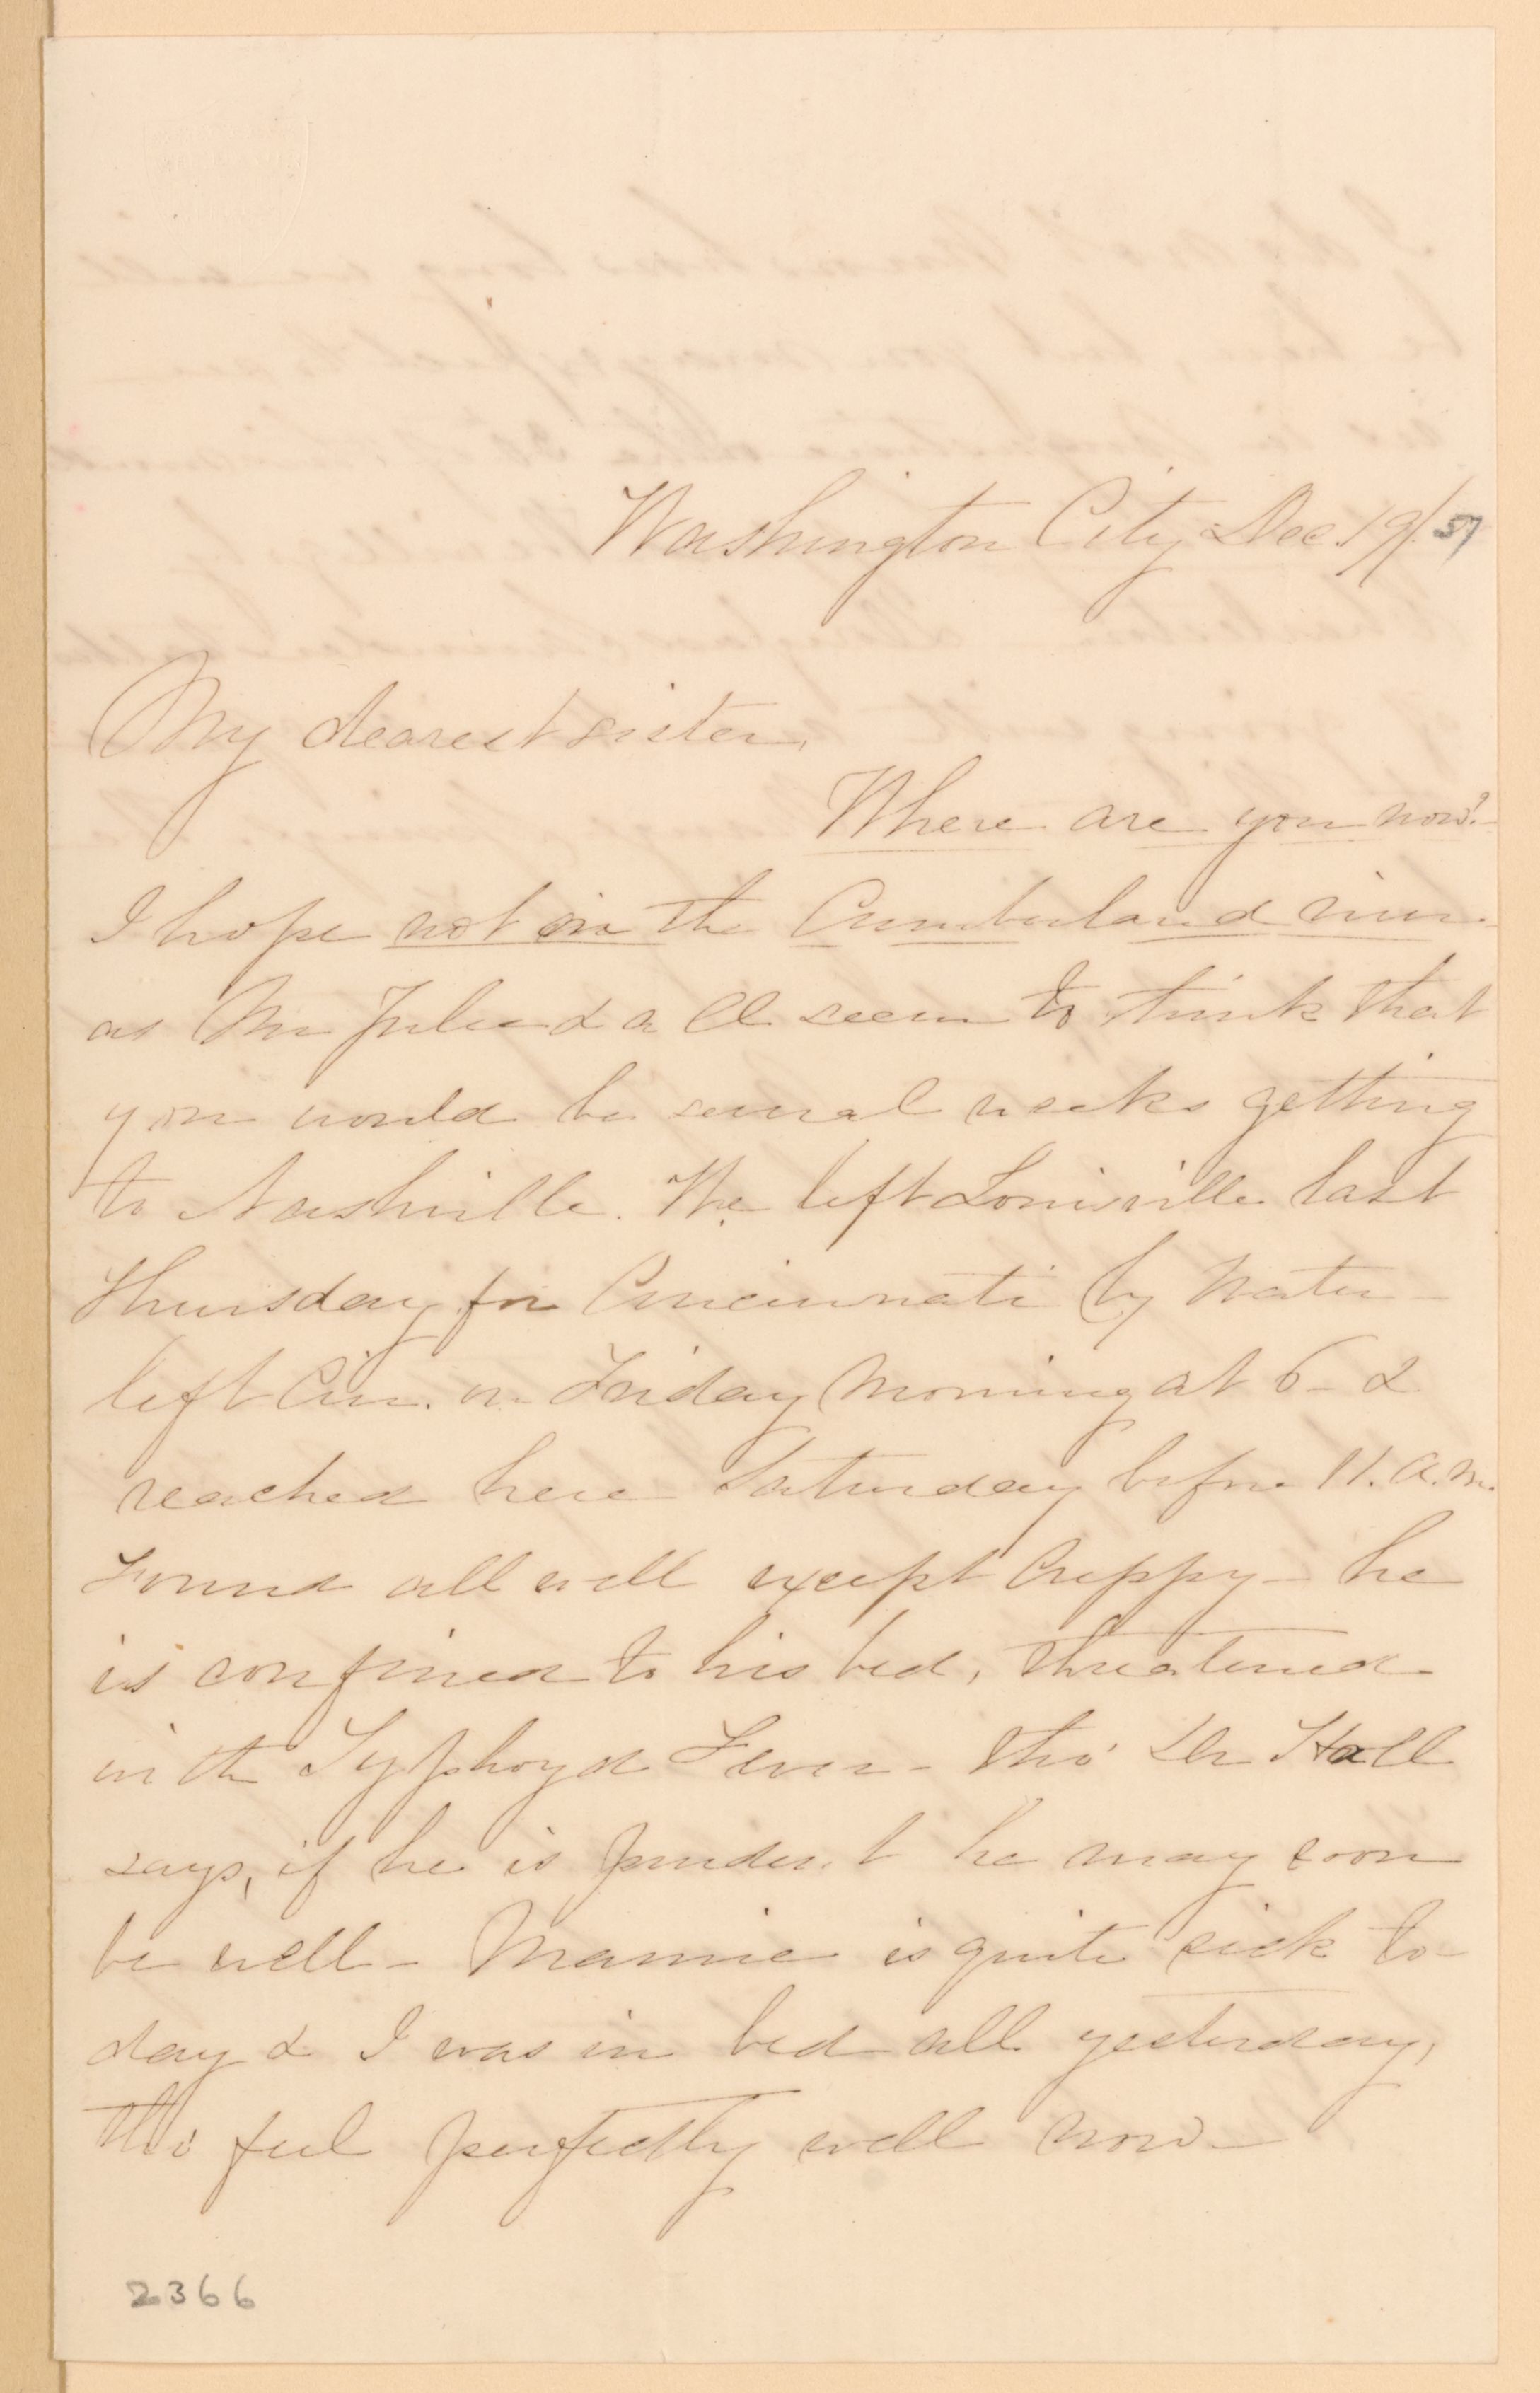 Washington City Dec. 19/57
My dearest sister,
Where are you now?
I hope not in the Cumberland river.
as Mr & all seem to think that
you would be several weeks getting
to Nashville. We left Louisville last
Thursday for Cincinnati by water -
left Cin. on Friday morning at 6 - &
reached here Saturday before 11. a.m.
Found all well except Crippy - he
is confined to his bed, threatened
with Typhoyd Fever - tho' Dr Hall
says, if he is prudent he may soon
be well - Mamie is quite sick to
day & I was in bed all yesterday,
tho' feel perfectly well now -
2366